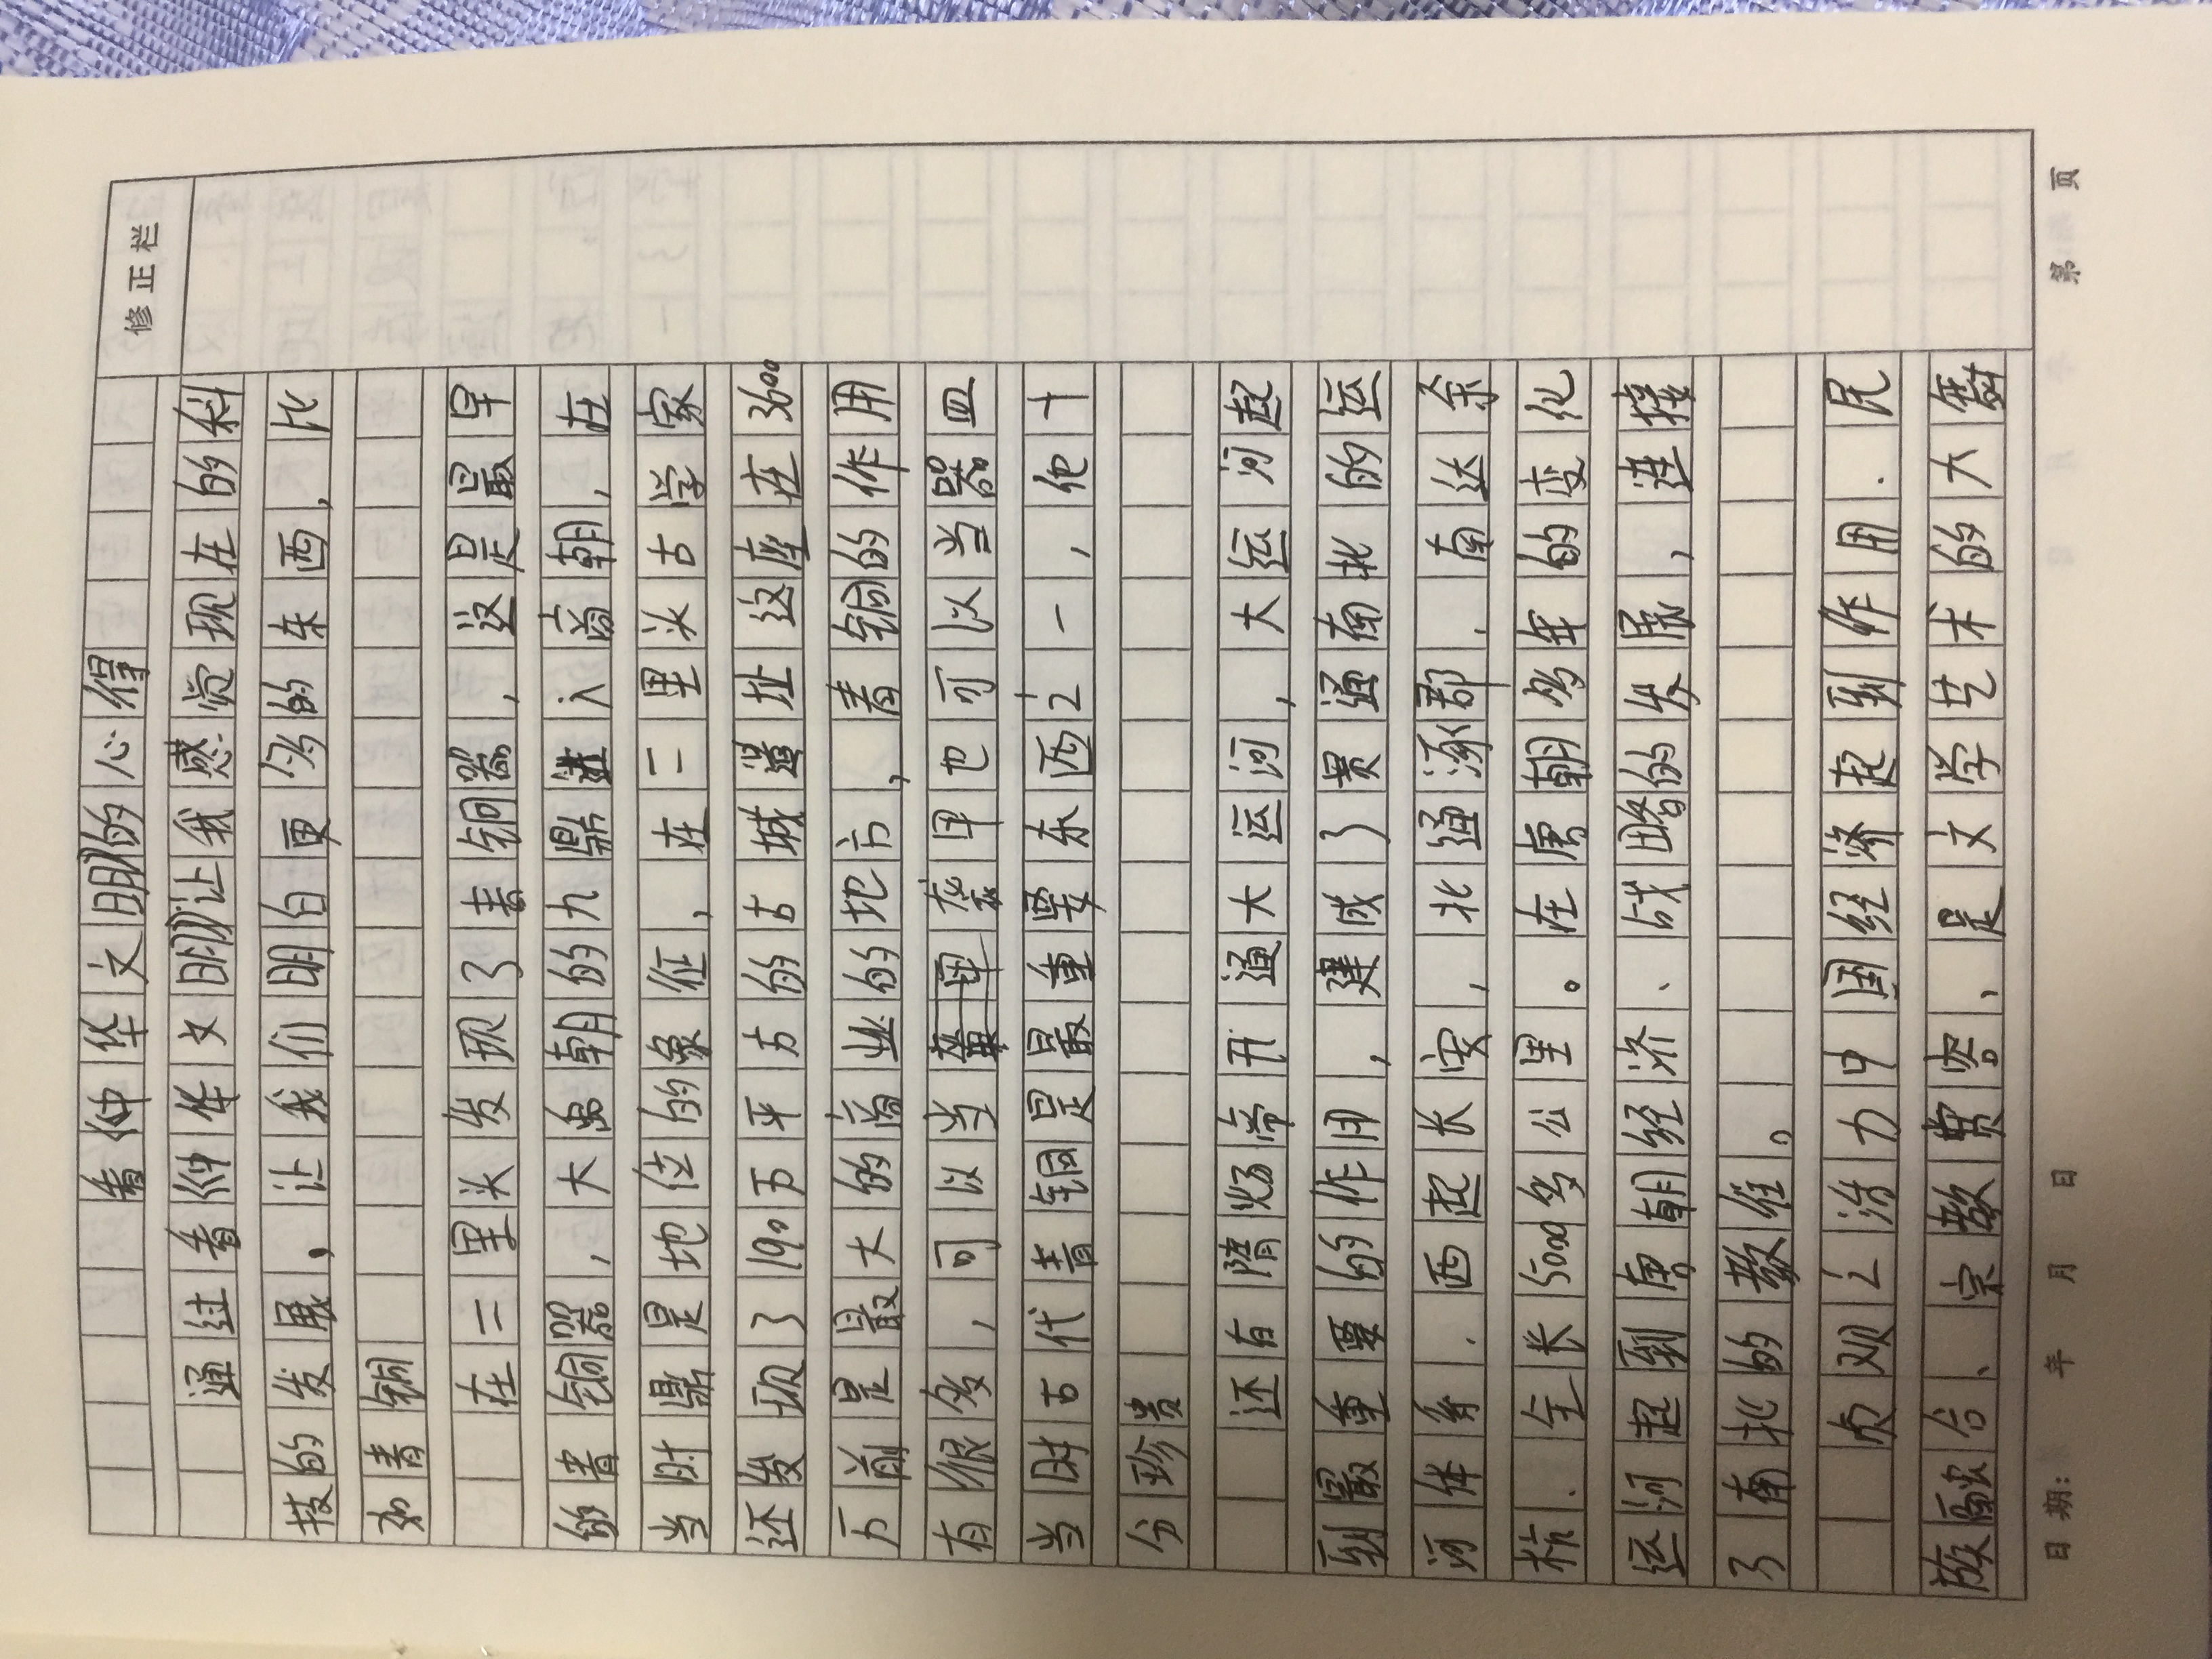 修正栏
看仲华文明的心得
通过看仲华文明让我感觉现在的科
技的发展，让我们明白更多的东西，比
如青铜
在二里头发现了青铜器，这是最早
的青铜器，大禹朝的九鼎进入商朝，在
当时鼎是地位的象征，在二里头古学家
还发现了190万平方的古城遗址这座在3600
万前是最大的商业的地方，青铜的作用
有很多，可以当盔甲也可以当器皿
当时古代青铜是最重要东西之一，他十
分珍贵
还有隋炀帝开通大运河，大运河起
到最重要的作用，建成了贯通南北的运
河体系．西起长安，北通涿郡．南达余
杭．全长5000多公里。在唐朝多年的变化
运河起到唐朝经济、战略的发展，连接
了南北的数维。
贞观之治为中国经济起到作用．民
族融合、宗教宽容、是文学艺术的大爆
日期： 年 月 日 第 页